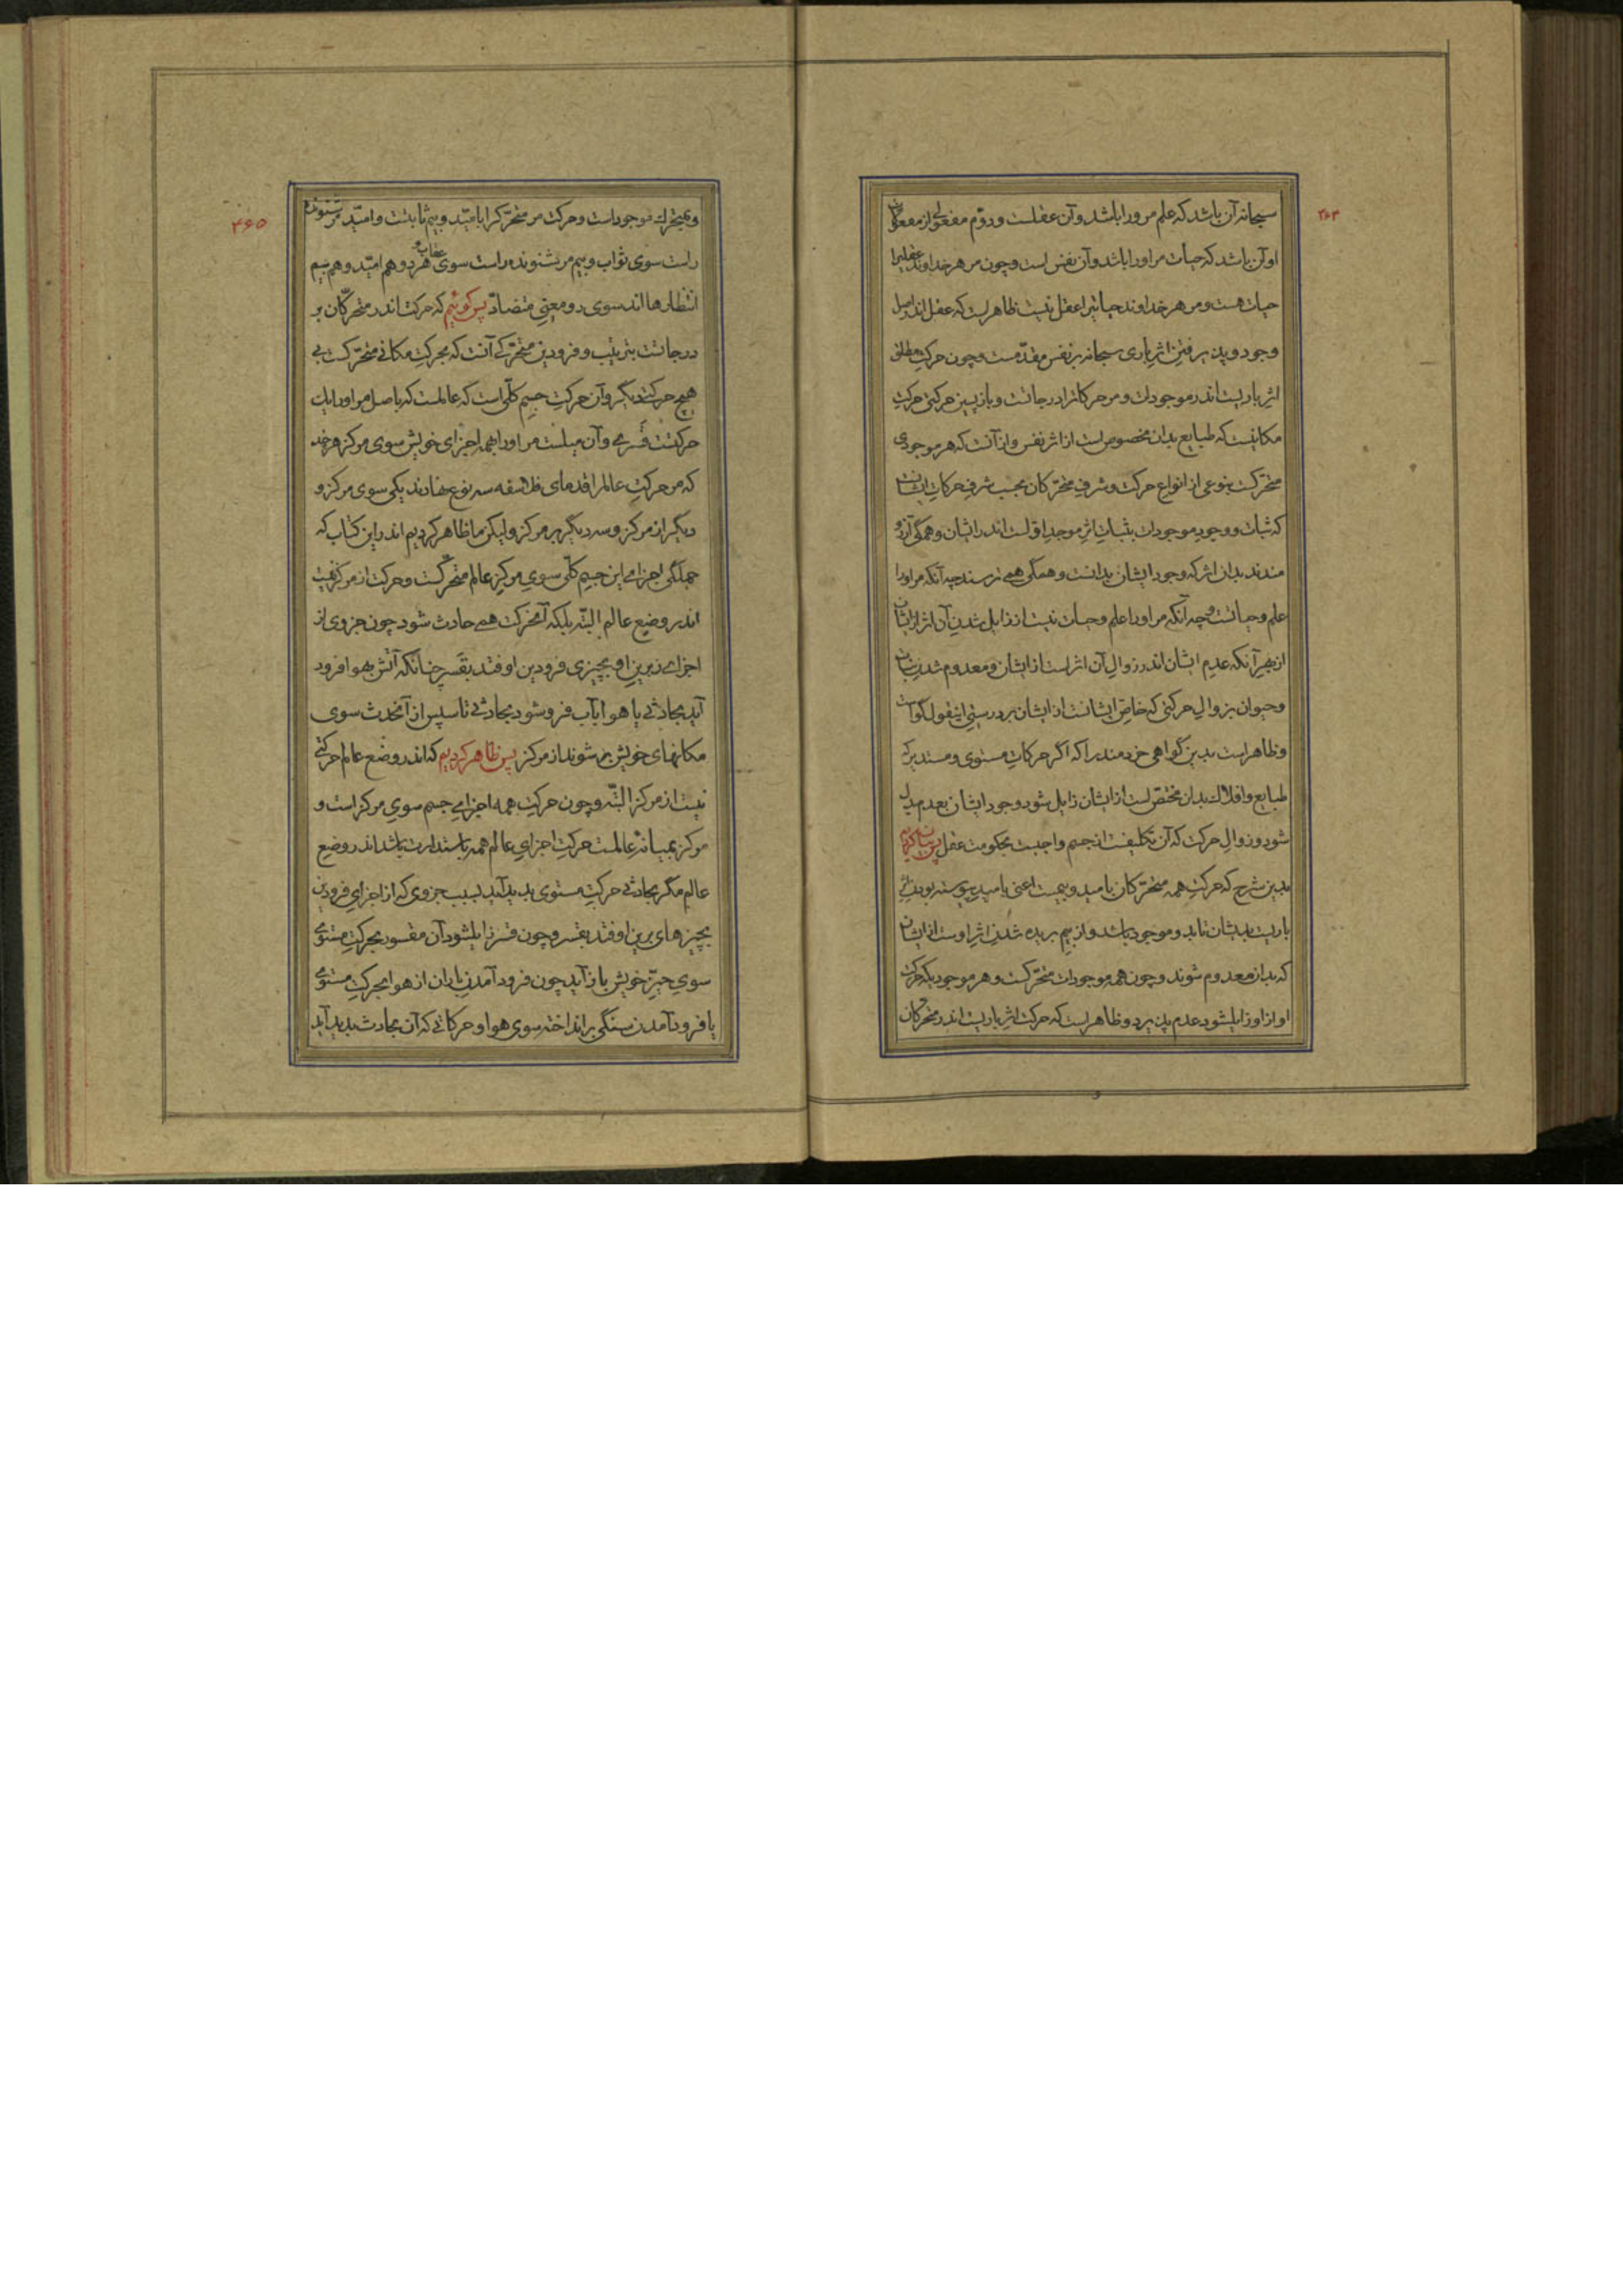 ۴۶۴
سبحانه آن باشد که علم مر ورا باشد و آن عقلست و دوّم مفعولی از مفعولات
او آن باشد که حیات مر اورا باشد و آن نفس است و چون مر هر خداوند عقلیرا
حیات هست و مر هر خداوند حیاتیرا عقل نیست ظاهر است که عقل اندر اصل
وجود و پذیرفتن اثر باری سبحانه بر نفس مقدّمست و چون حرکت مطلق
اثر باریست اندر موجودات و مر حرکاترا درجاتست و باز پسین حرکتی حرکت
مکانیست که طبایع بدان مخصوص است از اثر نفس و از آنست که هر موجودی
متحرّکست بنوعی از انواع حرکت و شرف متحرّکان بحسب شرف حرکات ایشانست
که ثبات و وجود موجودات بثبات اثر موجد اوّلست اندر ایشان و همگی آرزو
مندند بدان اثر که وجود ایشان بدانست و همگی همی ترسند چه آنکه مر اورا
علم و حیاتست و چه آنکه مر اورا علم و حیات نیست از زایل شدن آن اثر از ایشان
از بهر آنکه عدم ایشان اندر زوال آن اثر است از ایشان و معدوم شدن نبات
و حیوان بزوال حرکتی که خاصّ ایشانست از ایشان بر درستی اینقول گواست
و ظاهر است بدین گواهی خردمند را که اگر حرکات مستوی و مستدیر که
طبایع و افلاک بدان مختصّ است از ایشان زایل شود وجود ایشان بعدم بدل
شود و زوال حرکت که آن تکلیفست از جسم واجبست بحکومت عقل پس پیدا کردیم
بدین شرح که حرکت همه متحرّکان بامید و بیمست اعنی بامید پیوسته بودن اثر
باریست بدیشان تا بد و موجود باشد و از بیم بریده شدن اثر اوست از ایشان
که بدان معدوم شوند و چون همه موجودات متحرّکست و هر موجودیکه حرکت
او از او زایل شود عدم پذیرد و ظاهر است که حرکت اثر باریست اندر متحرّکان
۴۶۵
موجود است و حرکت مر متحرّک را بامّید و بیم ثابتست و امّید مر شنونده
راست سوی ثواب و بیم مر شنونده راست سوی عقاب و هر دو هم امّید و هم بیم
انتظارها اند سوی دو معنی متضادّ پس گوئیم که حرکت اندر متحرّکان بر
درجاتست بترتیب و فرودین متحرّکی آنست که بحرکت مکانی متحرّکست بی
هیچ حرکت دیگر و آن حرکت جسم کلّی است که عالمست که باصل مر اورا یک
حرکتست قسری و آن میلست مر اورا همه اجزای خویش سوی مرکز هر چند
که مر حرکت عالم را قدمای فلاسفه سه نوع نهادند یکی سوی مرکز و
دیگر از مرکز و سه دیگر بر مرکز ولیکن ما ظاهر کردیم اندر این کتاب که
جملگی اجزای این جسم کلّی سوی مرکز عالم متحرّکست و حرکت از مرکز نیست
اندر وضع عالم البتّه بلکه آنحرکت همی حادث شود چون جزوی از
اجزای زبرین او بچیزی فرودین اوفتد بقسر چنانکه آتش بهوا فرود
آید بحادثی یا هوا بآب فرو شود بحادثی تا سپس از آنحدث سوی
مکانهای خویش بر شوند از مرکز پس ظاهر کردیم که اندر وضع عالم حرکتی
نیست از مرکز البتّه و چون حرکت همه اجزای جسم سوی مرکز است و
مرکز بمیانه عالمست حرکت اجزای عالم همه باستدارت باشد اندر وضع
عالم مگر بحادثی حرکت مستوی پدید آید بسبب جزوی که از اجزای فرودین
بچیزهای برین اوفتد بقسر و چون قسر زایل شود آن مقسور بحرکت مستوی
سوی حیّز خویش باز آید چون فرود آمدن باران از هوا بحرکت مستوی
یا فرود آمدن سنگی بر انداخته سوی هوا و حرکاتی که آن بحادث پدید آید